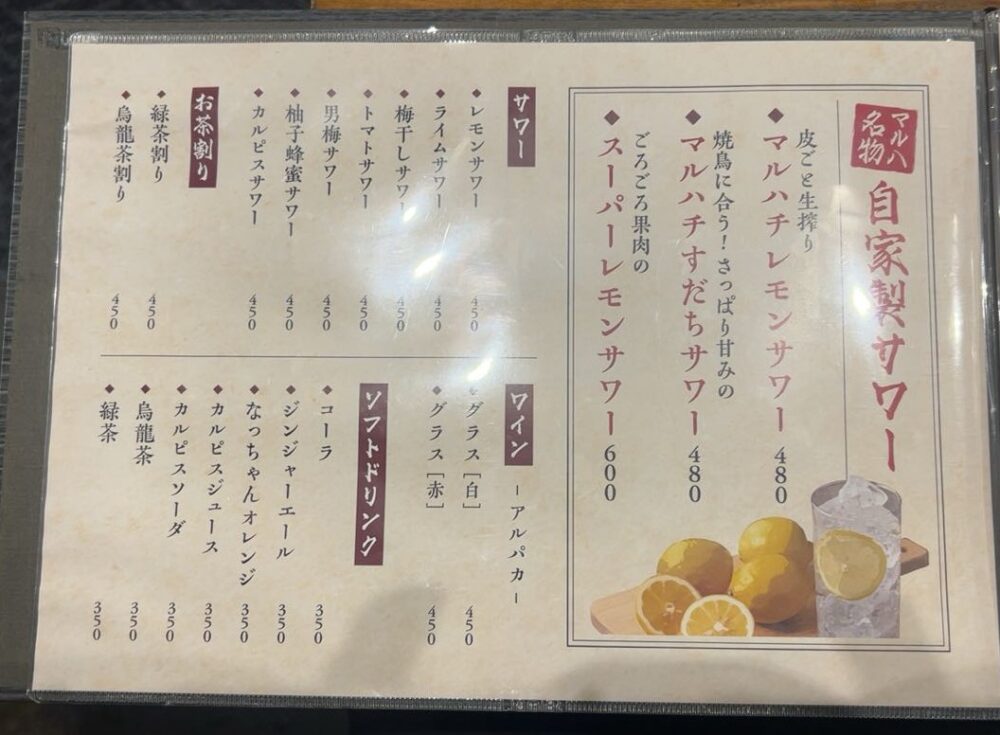 マルハ
名物
自家製サワー
皮ごと生搾り
◆マルハチレモンサワー 480
焼鳥に合う！さっぱり甘みの
◆マルハチすだちサワー 480
ごろごろ果肉の
◆スーパーレモンサワー 600
サワー
◆レモンサワー 450
◆ライムサワー 450
◆梅干しサワー 450
◆トマトサワー 450
◆男梅サワー 450
◆柚子蜂蜜サワー 450
◆カルピスサワー 450
お茶割り
◆緑茶割り 450
◆烏龍茶割り 450
ワイン ーアルパカー
◆グラス［白］ 450
◆グラス［赤］ 450
ソフトドリンク
◆コーラ 350
◆ジンジャーエール 350
◆なっちゃんオレンジ 350
◆カルピスジュース 350
◆カルピスソーダ 350
◆烏龍茶 350
◆緑茶 350